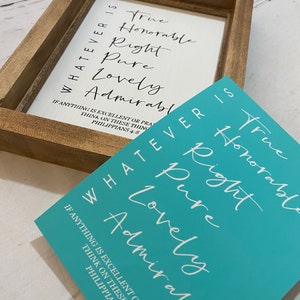 WHATEVER IS
True
Honorable
Right
Pure
Lovely
Admirable
IF ANYTHING IS EXCELLENT OR
THINK ON THESE THIN
PHILIPPIANS 4:8
WHATEVER IS
True
Honorable
Right
Pure
Lovely
IF ANYTHING IS EXCELLENT O
THINK ON THESE
PHILIPPIANS